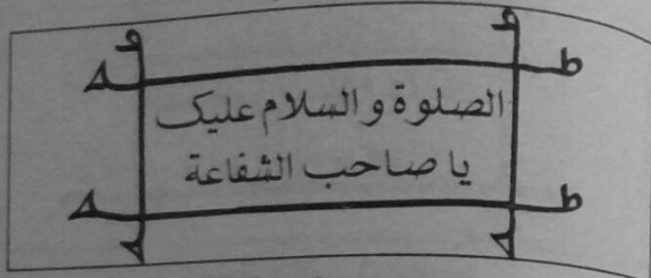 الصلوة و السلام علیک
یا صاحب الشفاعة